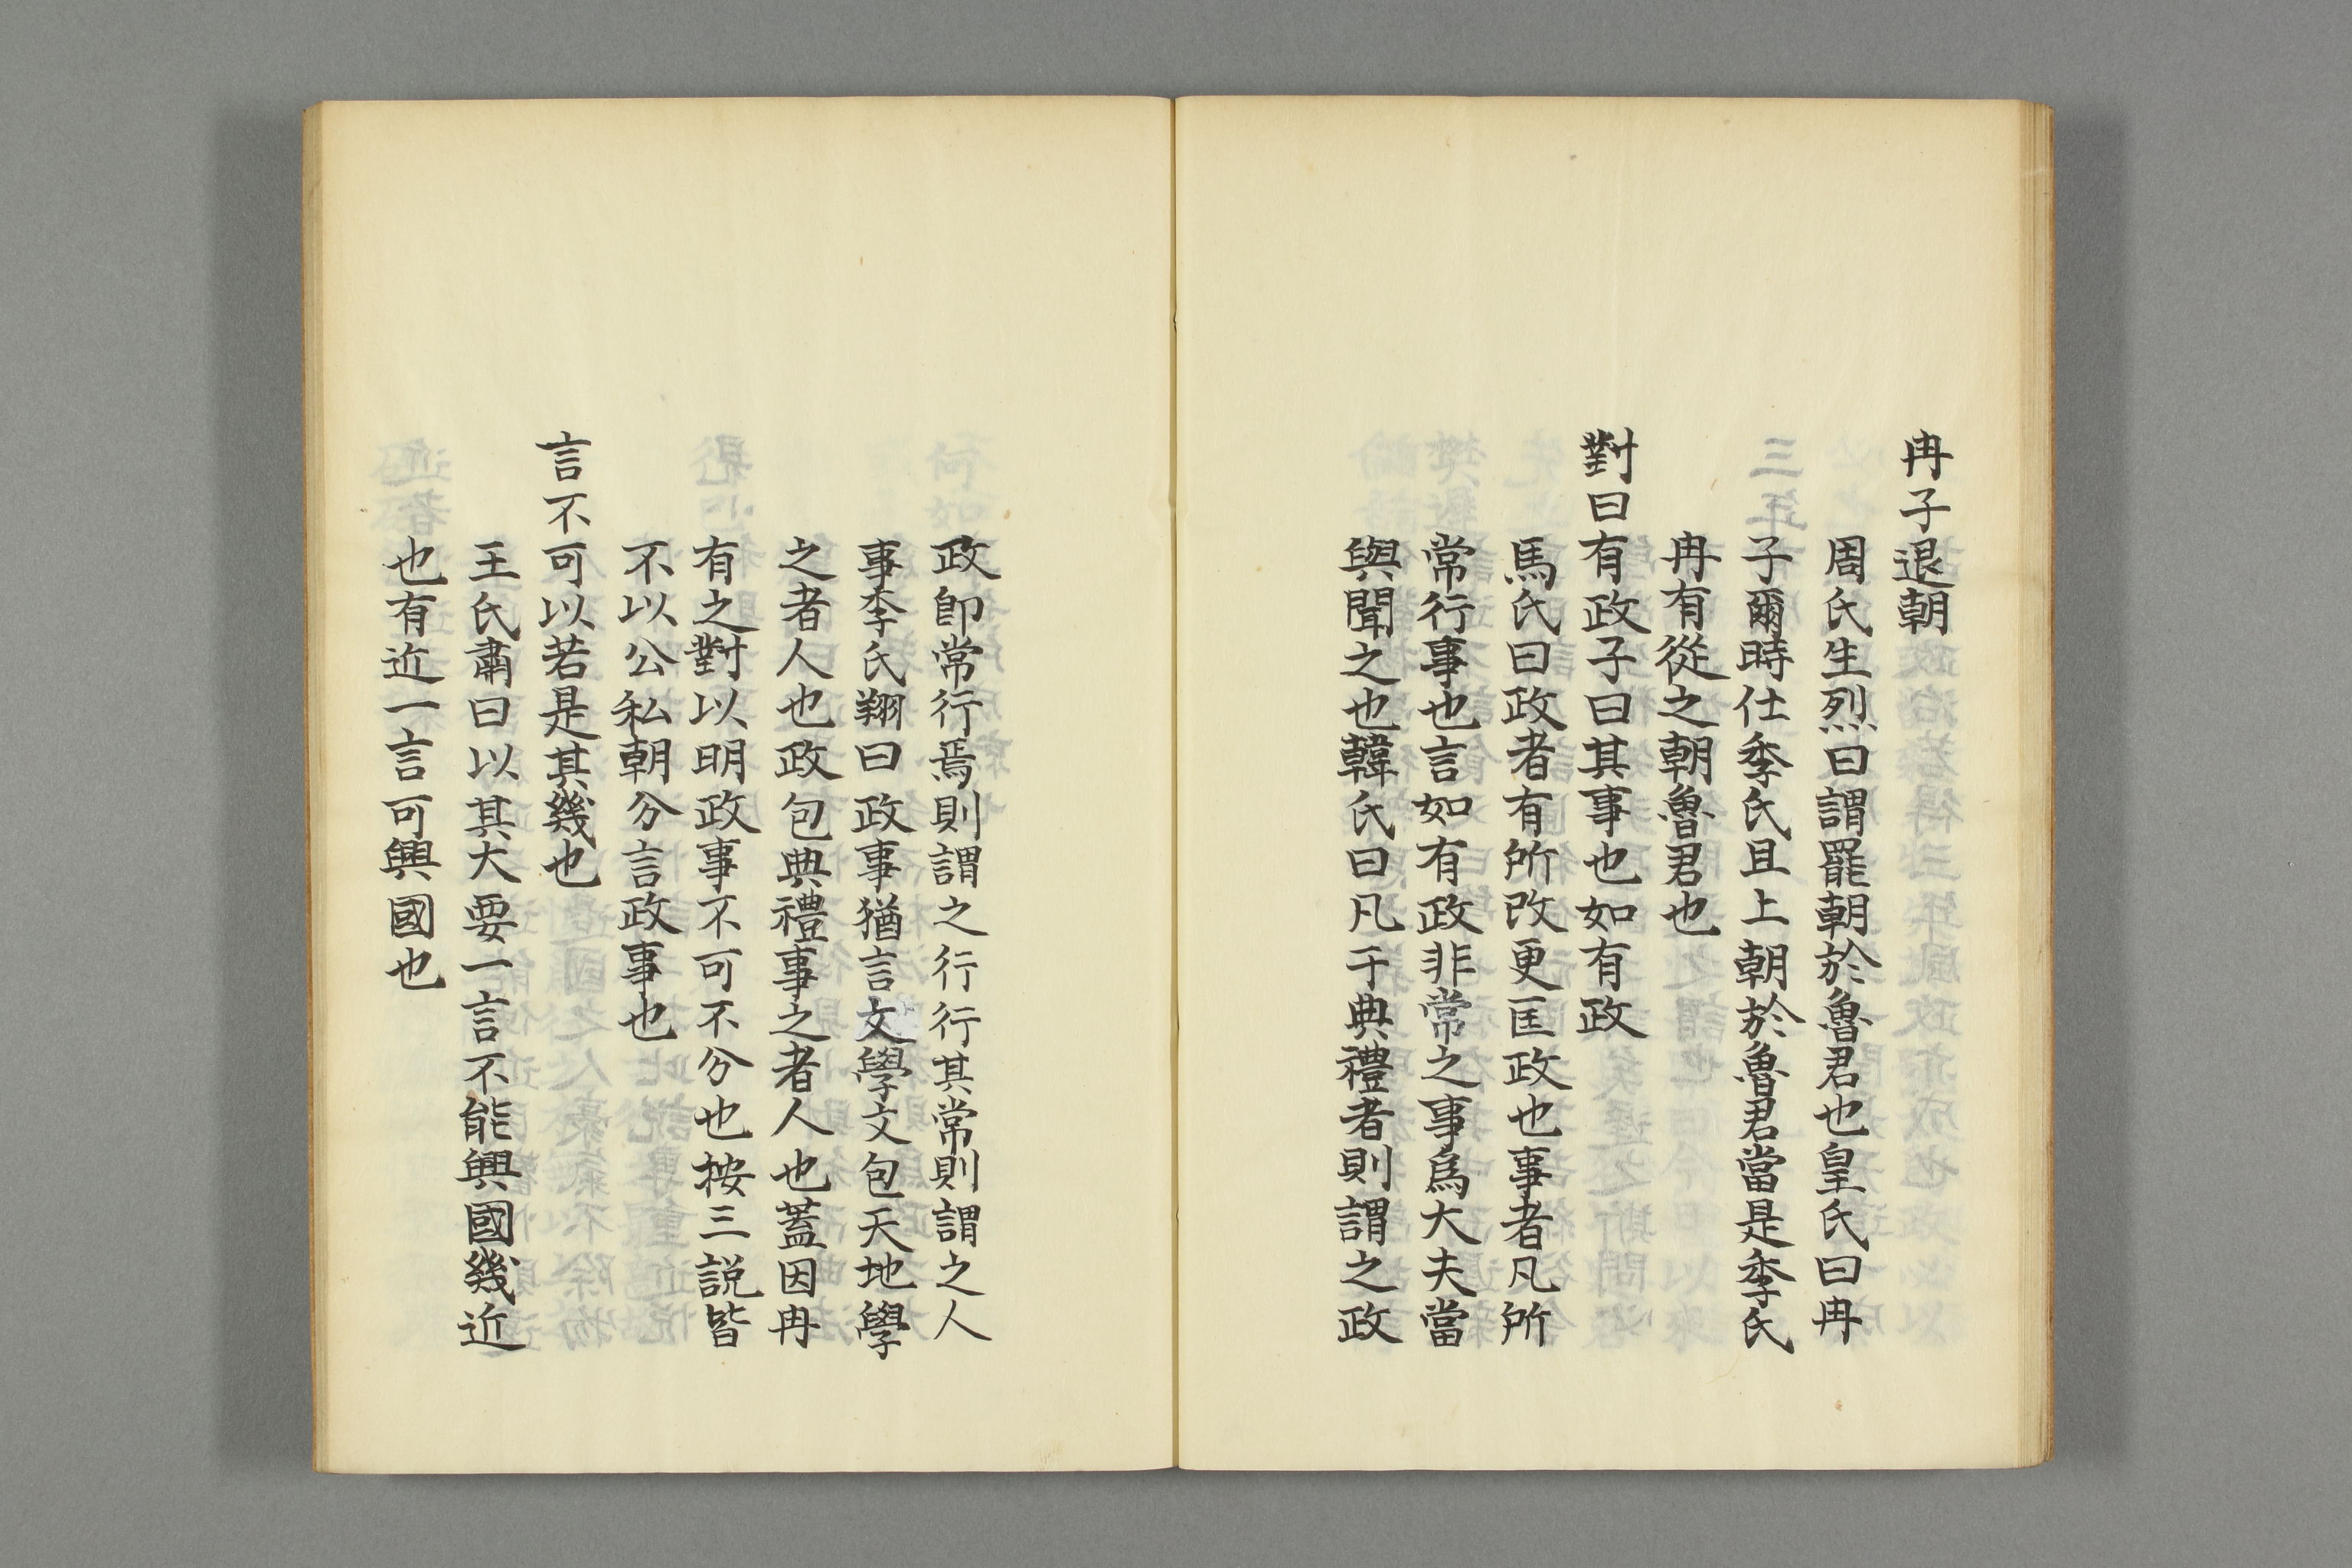 冉子退朝
周氏生烈曰謂罷朝於魯君也皇氏曰冉
子爾時仕季氏且上朝於魯君當是季氏
冉有從之朝魯君也
對曰有政子曰其事也如有政
馬氏曰政者有所改更匡政也事者凡所
常行事也言如有政非常之事爲大夫當
與聞之也韓氏曰凡于典禮者則謂之政
政卽常行焉則謂之行行其常則謂之人
事李氏翔曰政事猶言文學文包天地學
之者人也政包典禮事之者人也蓋因冉
有之對以明政事不可不分也按三説皆
不以公私朝分言政事也
言不可以若是其幾也
王氏肅曰以其大要一言不能興國幾近
也有近一言可興國也